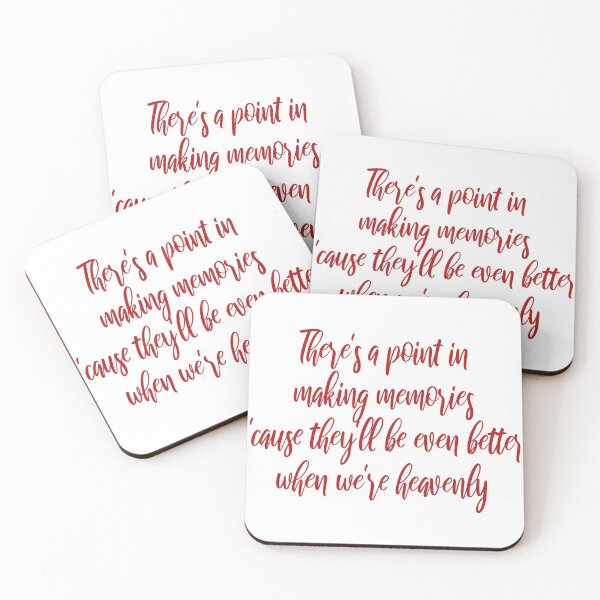 There's a point in
making memories
'cause they'll be even
There's a point in
making memories
'cause they'll be even better
when we're heavenly
There's a point in
making memories
'cause they'll be even bette
when we're hea
There's a point in
making memories
'cause they'll be even better
when we're heavenly